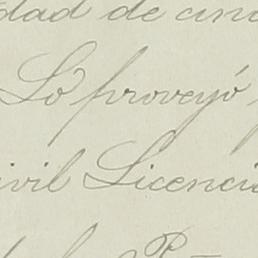 dad de cinc
Lo proveyó
ivil Licenci